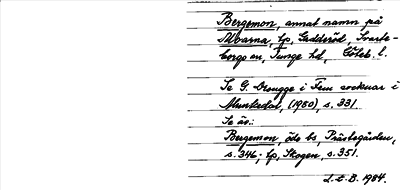 Bergemon, annat namn på
Kvarna, tp, Gadderöd, Svarte-
borgs sn, Tunge hd, Göteb. l.
Se G. Drougge i Fem socknar i
Munkedal, (1980), s. 331.
Se äv.:
Bergemon, öde bs, Prästegården,
s. 346; tp, Skogen, s. 351.
L.-E. B. 1984.